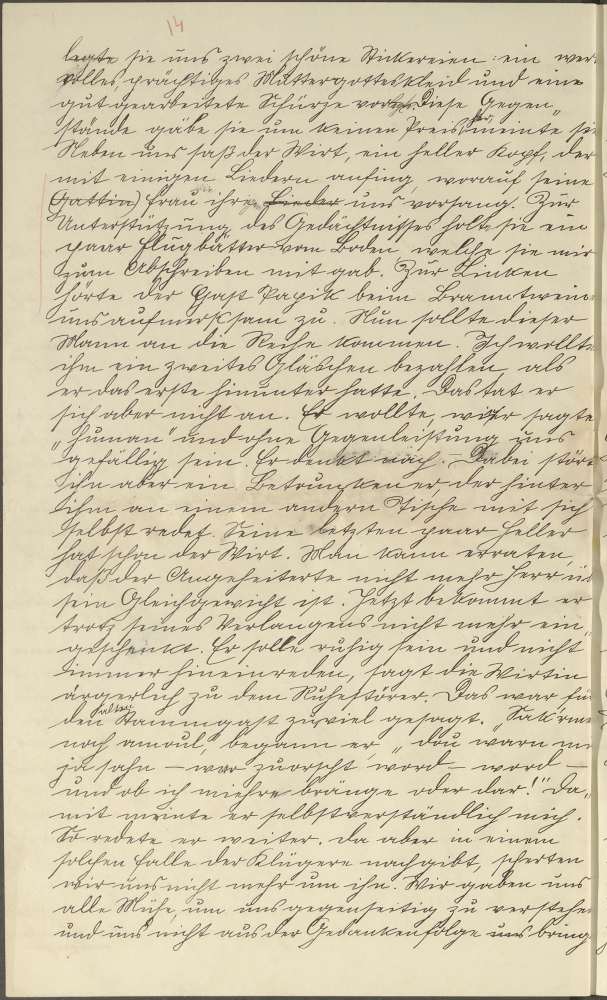 14
legte sie uns zwei schöne Stickereien: ein wer
volles, prächtiges Muttergotteskleid und eine
gut gearbeitete Schürze vor. Diese Gegen-
stände gäbe sie um keinen Preis her, meinte sie
Neben uns saß der Wirt, ein heller Kopf, der
mit einigen Liedern anfing, worauf seine
(Gattin) Frau ihre Lieder uns vorsang. Zur
Unterstützung des Gedächtnisses holte sie ein
paar Flugblätter vom Boden welche sie mir
zum Abschreiben mit gab. Zur Linken
hörte der Gast Papik beim Branntwein
uns aufmerksam zu. Nun sollte dieser
Mann an die Reihe kommen. Ich wollte
ihm ein zweites Gläschen bezahlen, als
er das erste hinunter hatte. Das tat er
sich aber nicht an. Er wollte, wie er sagte
"human" und ohne Gegenleistung uns
gefällig sein. Er denkt nach. – Dabei stört
ihn aber ein Betrunkener, der hinter
ihm an einem andern Tische mit sich
selbst redet. Seine letzten paar Heller
hat schon der Wirt. Man kann erraten,
daß der Angeheiterte nicht mehr Herr üb
sein Gleichgewicht ist. Jetzt bekommt er
trotz seines Verlangens nicht mehr ein-
geschenkt. Er solle ruhig sein und nicht
immer hineinreden, sagt die Wirtin
ärgerlich zu dem Ruhestörer. Das war für
den alten Stammgast zuviel gesagt. "Sakrme
noch amoul," begann er, "dou warn mr
ja sahn – war zuorscht word – word –
und ob ich miehre bränge oder dar!" Da-
mit meinte er selbstverständlich mich.
So redete er weiter. Da aber in einem
solchen Falle der Klügere nachgibt, scherten
wir uns nicht mehr um ihn. Wir gaben uns
alle Mühe, um uns gegenseitig zu verstehe
und uns nicht aus der Gedankenfolge uns bring